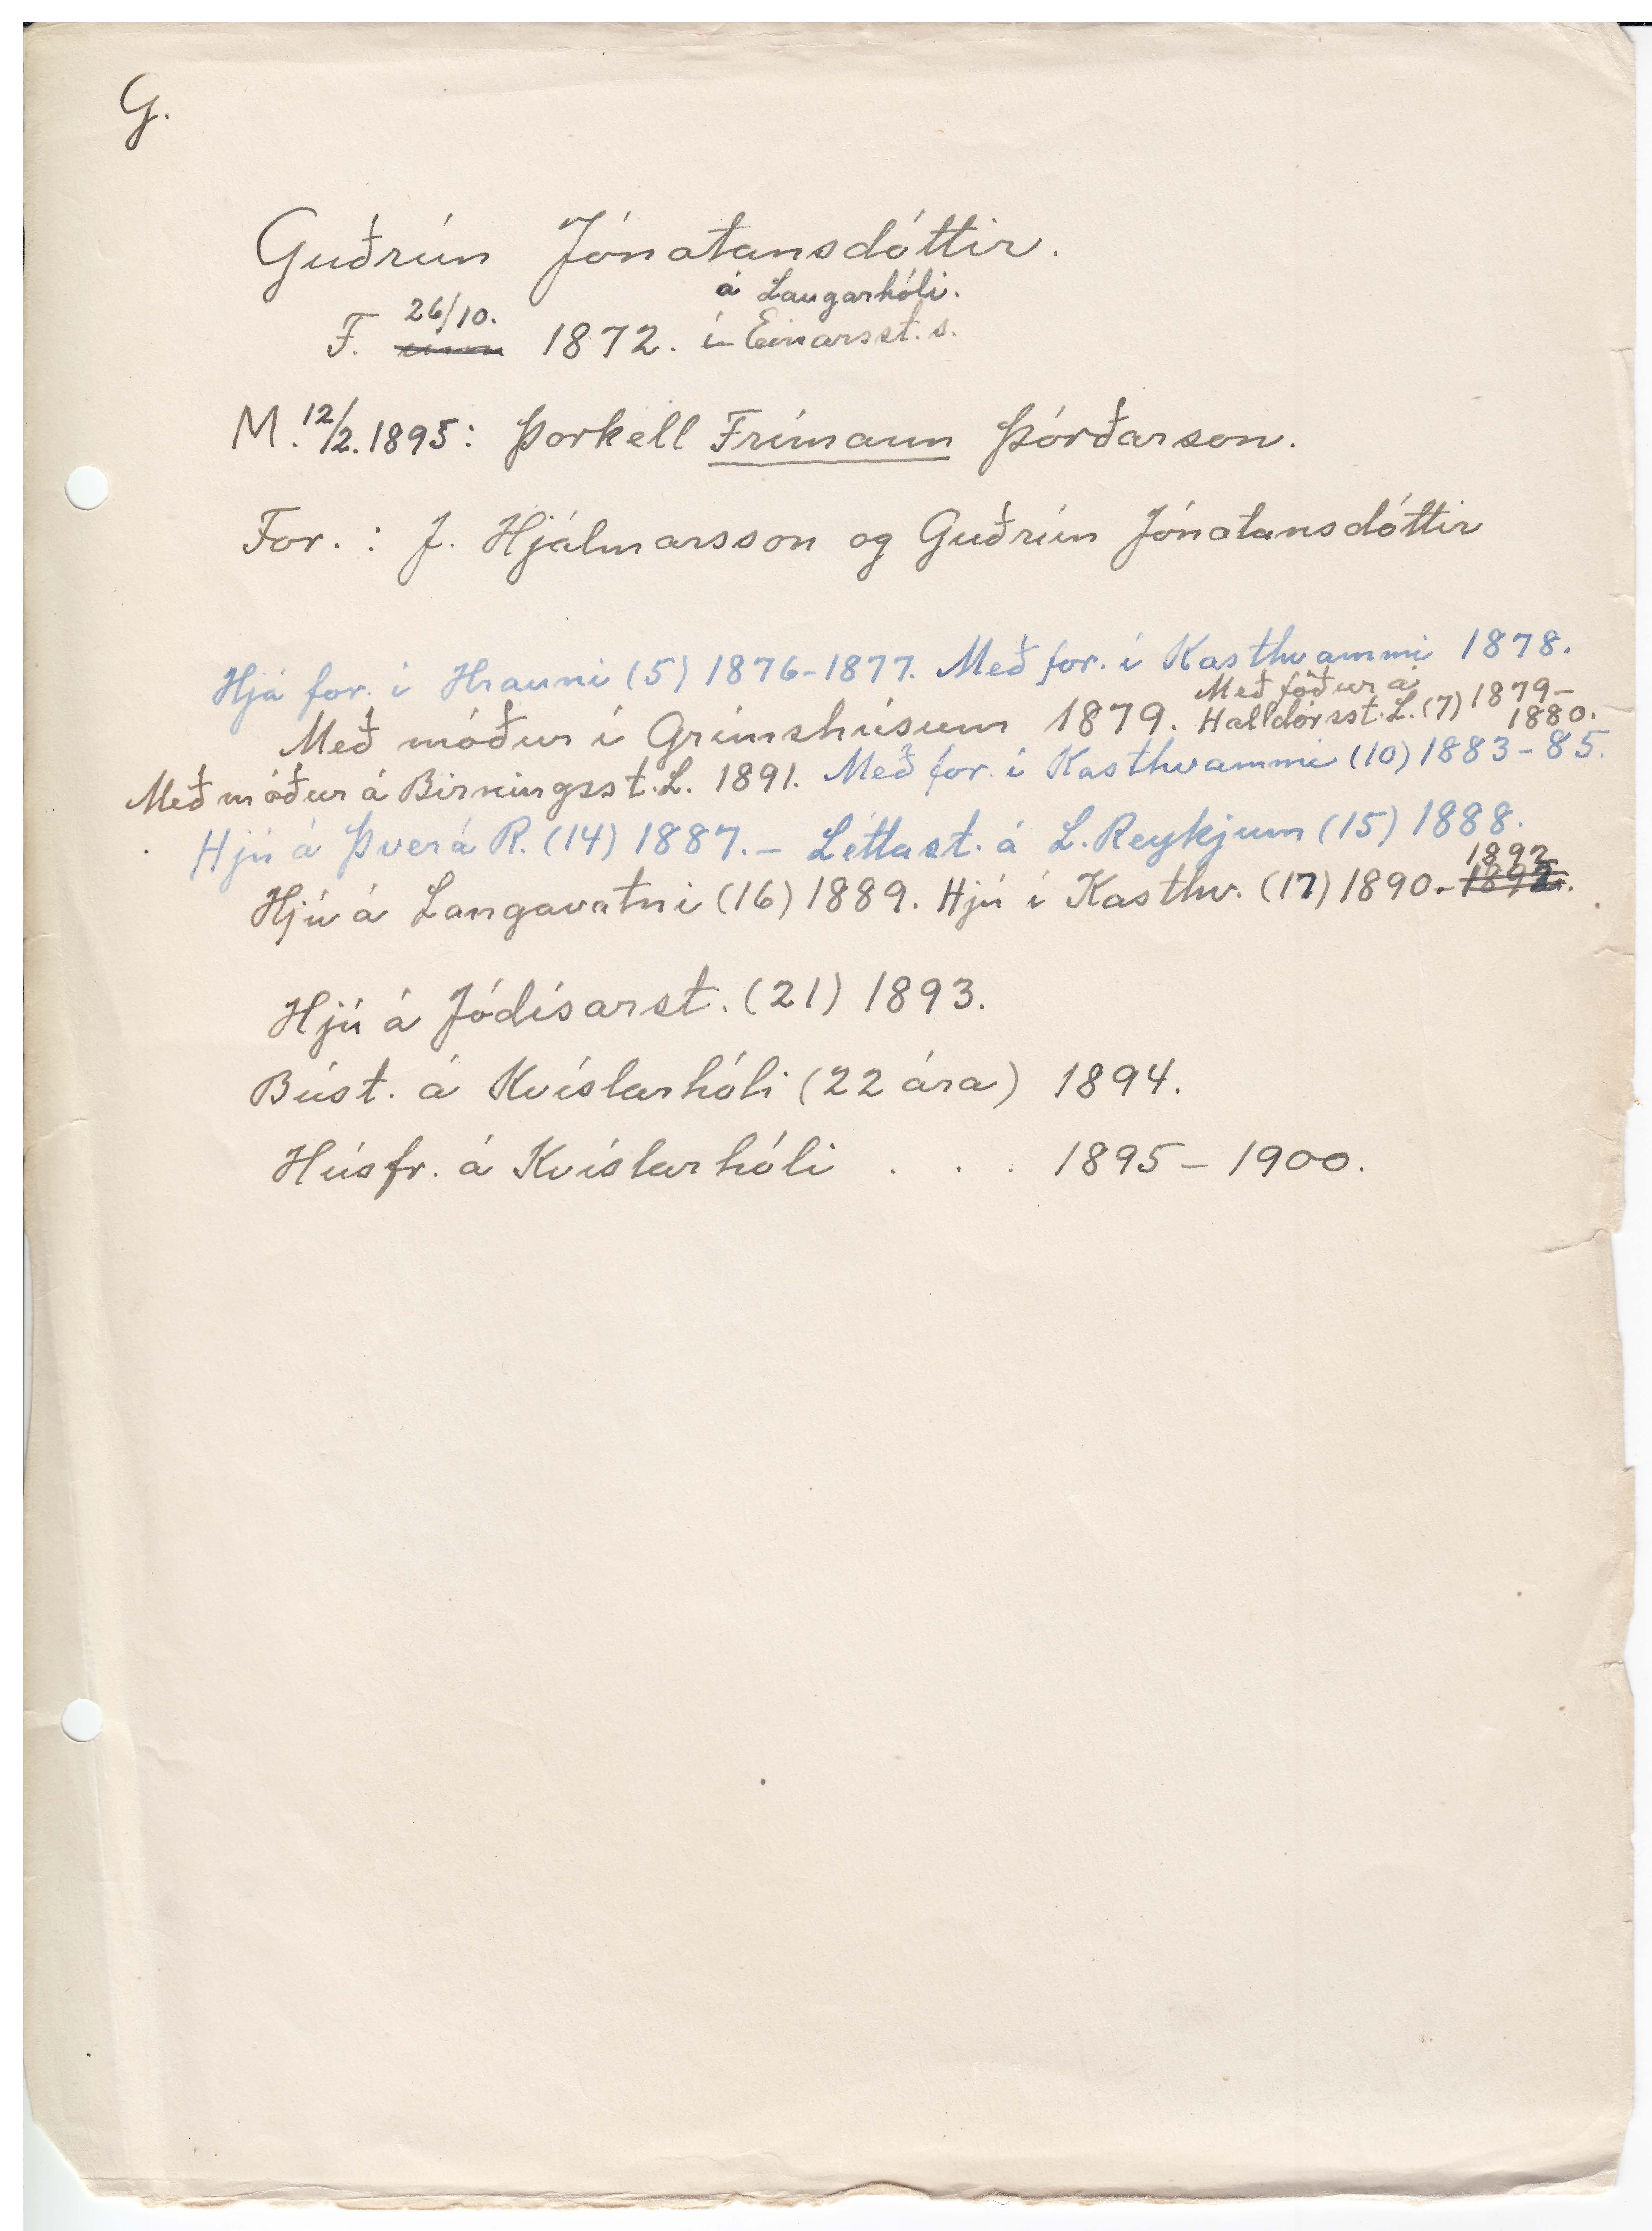 G.
Guðrún Jónatansdóttir.
á Laugarhóli.
26/10.
F. 1872. í Einarsst.s.
M. 12/2. 1895: Þorkell Frímann Þórðarson.
For. : J. Hjálmarsson og Guðrún Jónatansdóttir
Hjá for. í Hrauni (5) 1876-1877. Með for. í Kasthvammi 1878.
Með móður í Grímshúsum 1879. Með föður á Halldórsst. L. (7) 1879-1880.
Með móður á Birningsst. L. 1891. Með for. í Kasthvammi (10) 1883-85.
Hjú á Þverá R. (14) 1887. - Léttast. á L. Reykjum (15) 1888.
1892
Hjú á Langavatni (16) 1889. Hjú í Kasthv. (17) 1890.-1892.
Hjú á Jódísarst. (21) 1893.
Búst. á Kvíslarhóli (22 ára) 1894.
Húsfr. á Kvíslarhóli . . . 1895 - 1900.